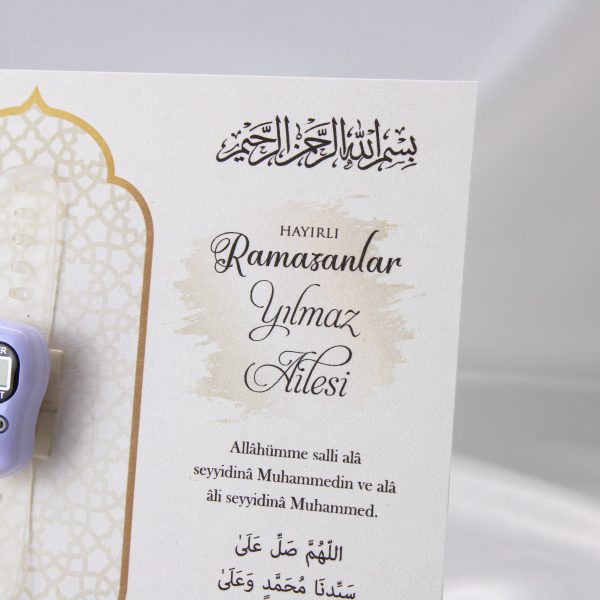 بِسْمِ اللهِ الرَّحْمٰنِ الرَّحِيْمِ
HAYIRLI
Ramazanlar
Yılmaz
Ailesi
Allâhümme salli alâ
seyyidinâ Muhammedin ve alâ
âli seyyidinâ Muhammed.
اَللّٰهُمَّ صَلِّ عَلَىٰ
سَيِّدِنَا مُحَمَّدٍ وَعَلَىٰ